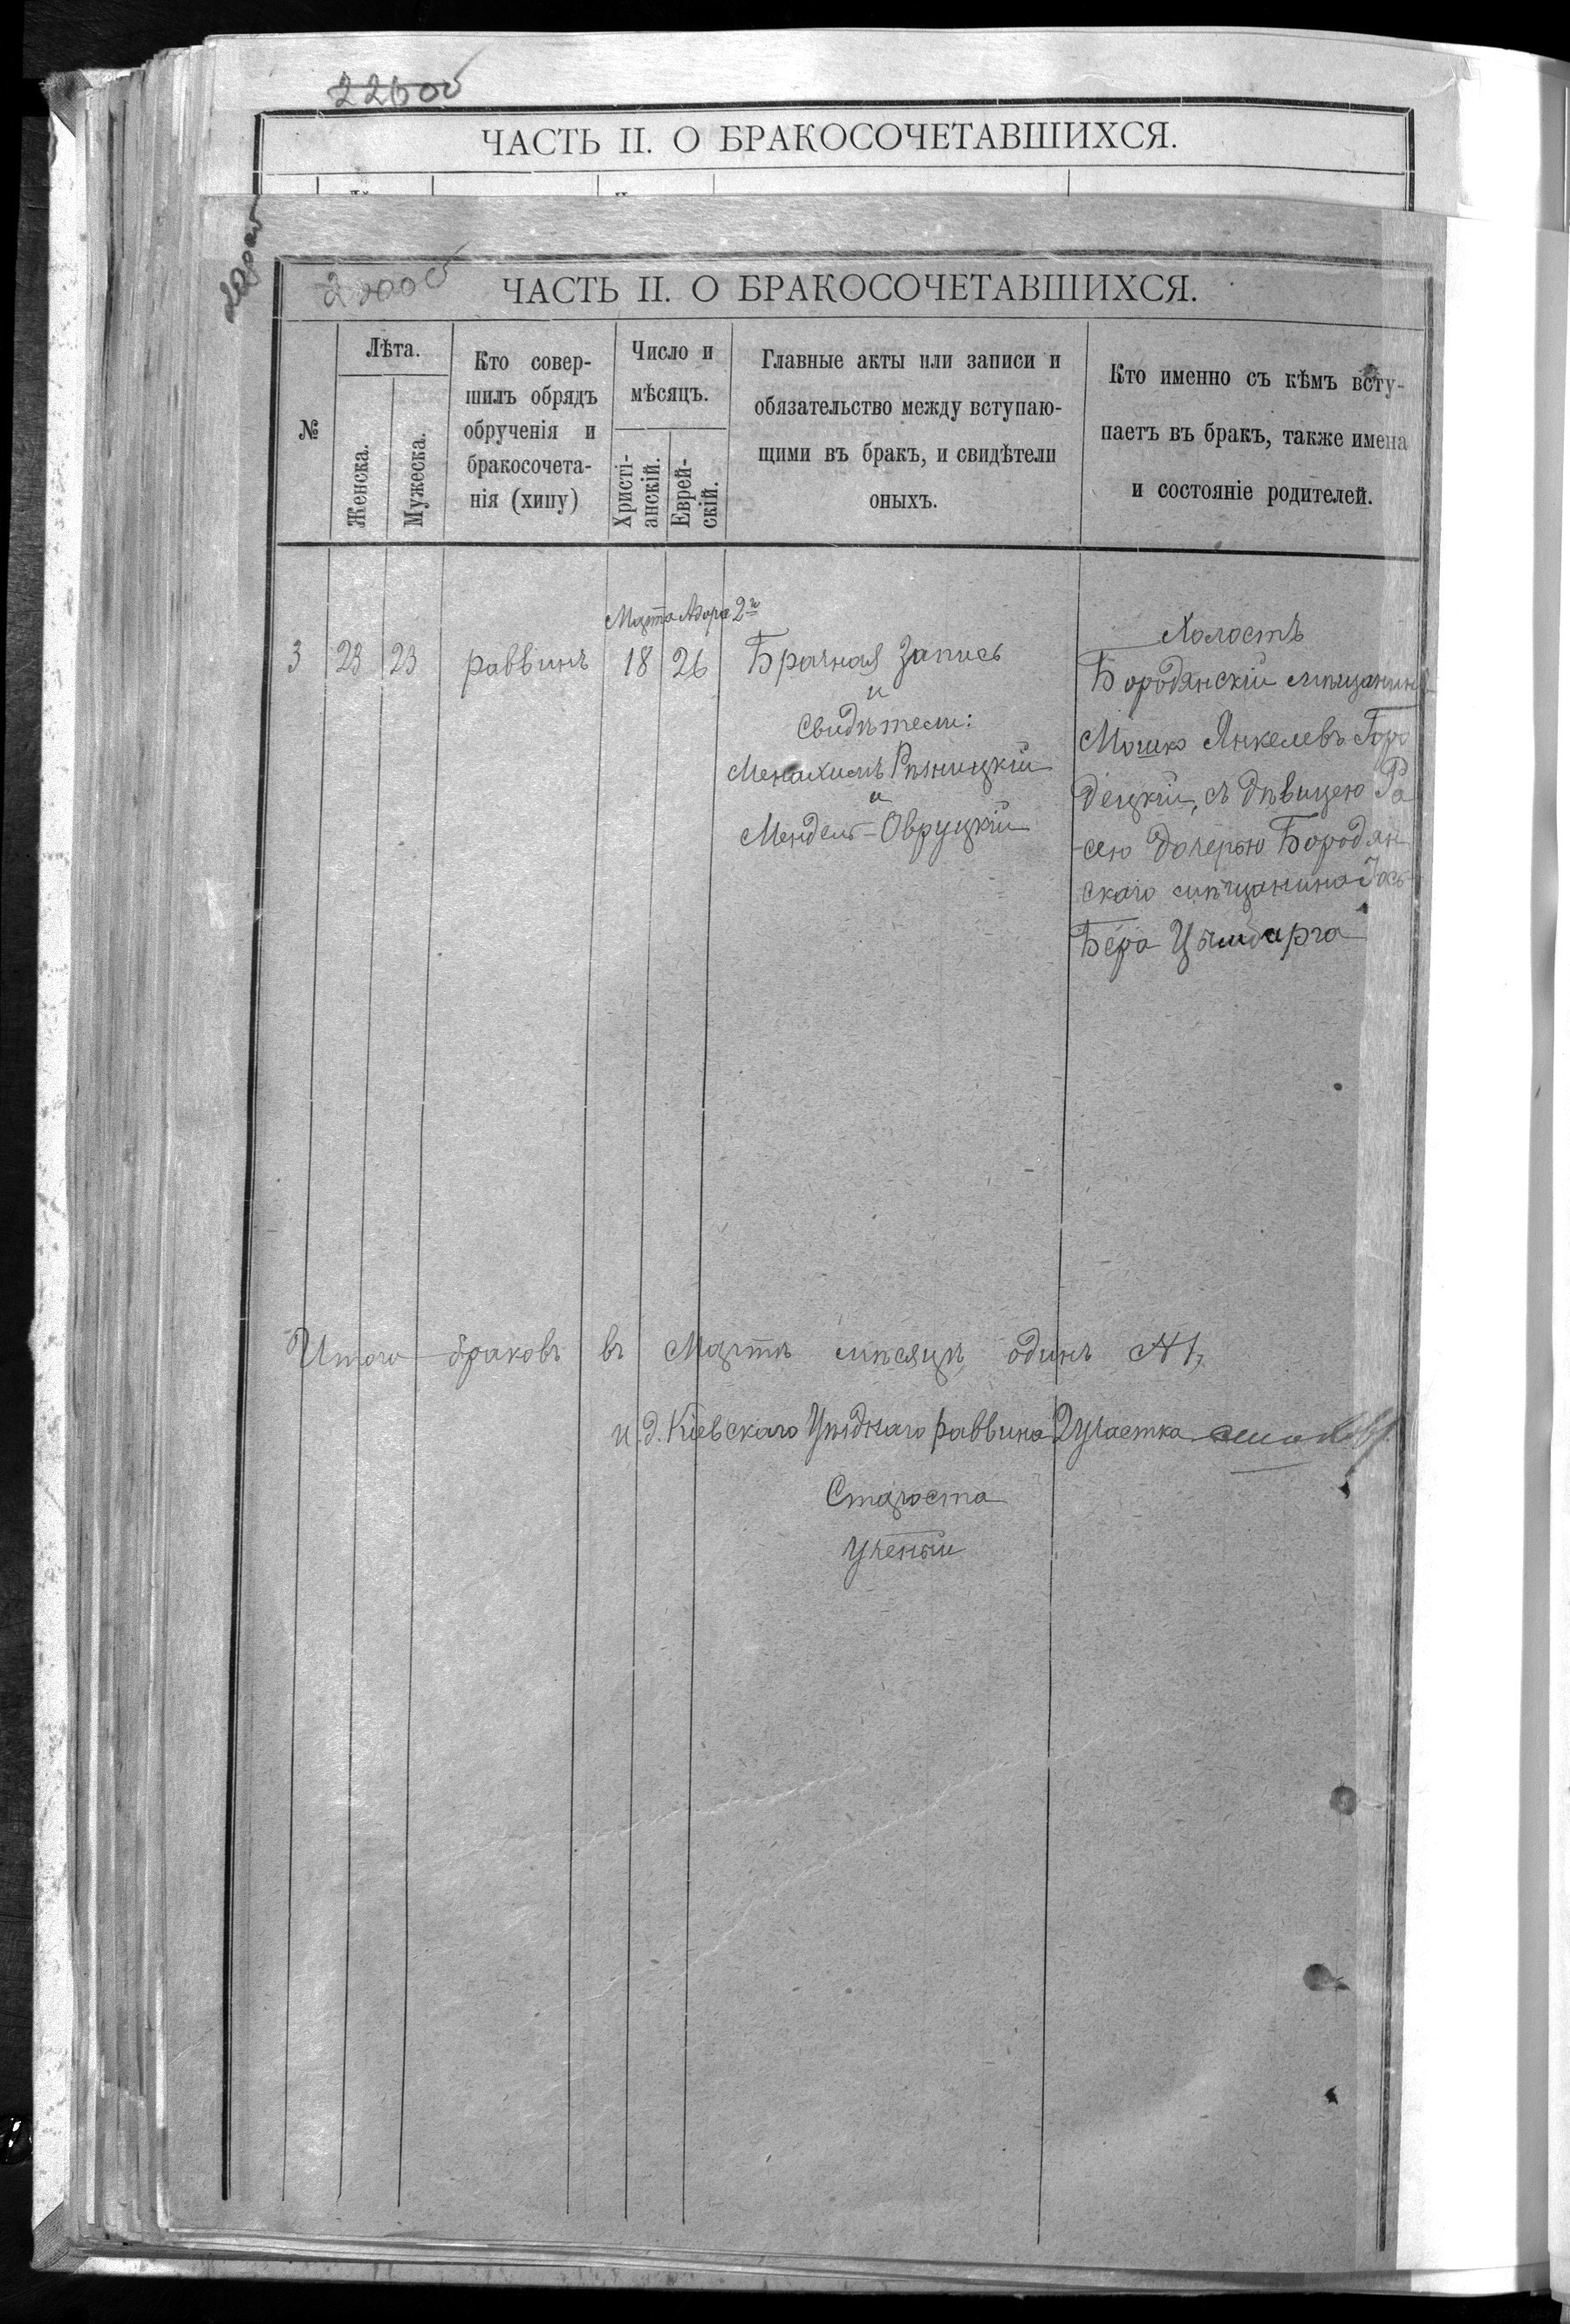 22600
ЧАСТЬ II. О БРАКОСОЧЕТАВШИХСЯ.
ЧАСТЬ II. О БРАКОСОЧЕТАВШИХСЯ.
№
Лѣта.
Женска.
Мужеска.
Кто совер-
шилъ обрядъ
обрученія и
бракосочета-
нія (хипу)
Число и
мѣсяцъ.
Христі-
анскій.
Еврей-
скій.
Главные акты или записи и
обязательство между вступаю-
щими въ бракъ, и свидѣтели
оныхъ.
Кто именно съ кѣмъ всту-
паетъ въ бракъ, также имена
и состояніе родителей.
Марта Адара 2го
3 23 23 раввинъ 18 26
Брачная запись
и
Свидѣтели:
Менахимъ Рѣзницкій
и
Мендель Овруцкій
Холостъ
Бородянскій мѣщанинъ
Мошко Янкелевъ Горо
децкій, съ дѣвицею Ра
сею дочерью Бородян
скаго мѣщанина Іось
Бера Цымбарга
Итого браковъ въ Мартѣ мѣсяцѣ одинъ №1,
и.д. Кіевскаго Уѣзднаго раввина 2 участка
Староста
Ученый